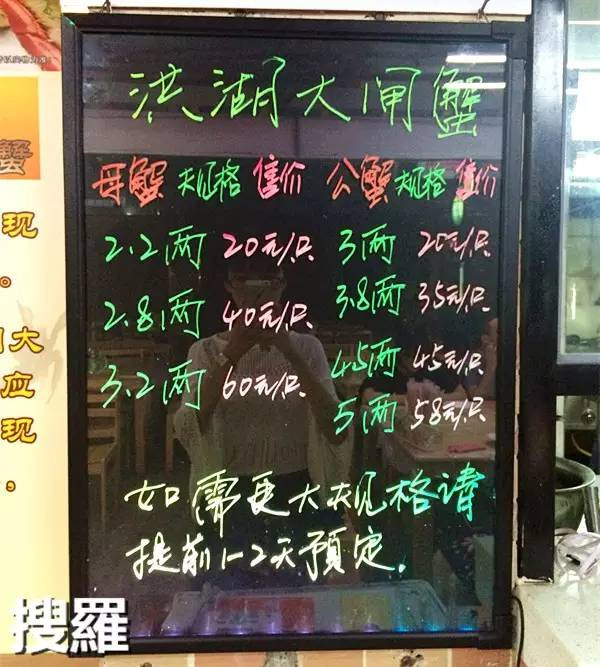 洪湖大闸蟹
母蟹 规格 售价 公蟹 规格 售价
2.2两 20元/只 3两 20元/只
2.8两 40元/只 3.8两 35元/只
3.2两 60元/只 4.5两 45元/只
5两 58元/只
如需更大规格请
提前1-2天预定.
蟹
现
。
大
应
现
，
搜羅